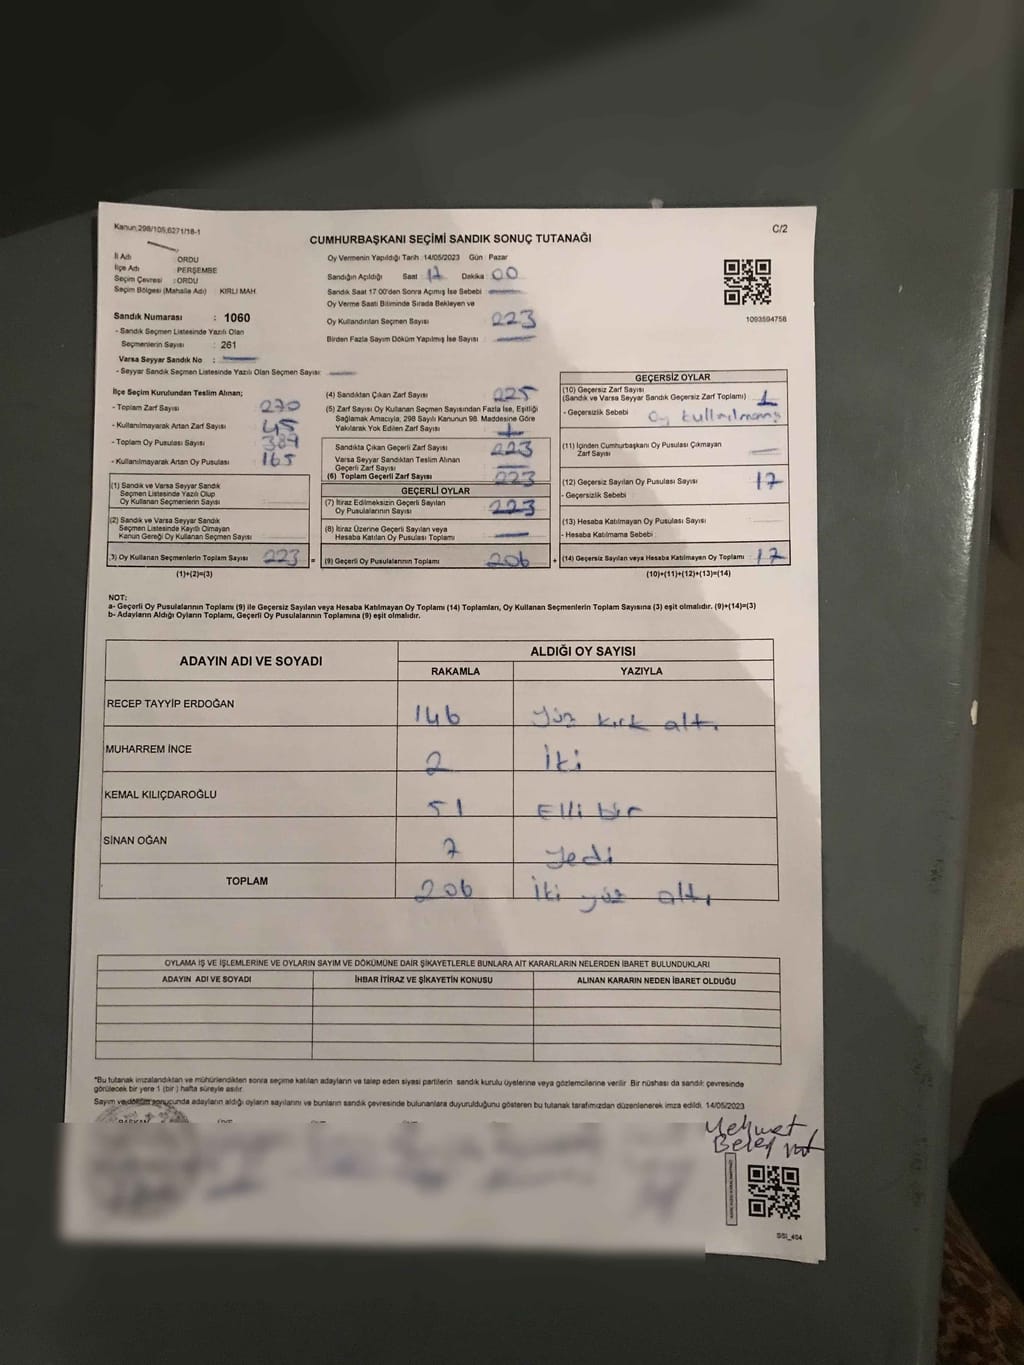 Kanun 298/105;6271/18-1
C/2
CUMHURBAŞKANI SEÇİMİ SANDIK SONUÇ TUTANAĞI
İl Adı ORDU
İlçe Adı PERŞEMBE
Seçim Çevresi : ORDU
Seçim Bölgesi (Mahalle Adı) KIRLI MAH.
Sandık Numarası : 1060
- Sandık Seçmen Listesinde Yazılı Olan
Seçmenlerin Sayısı : 261
Varsa Seyyar Sandık No :
- Seyyar Sandık Seçmen Listesinde Yazılı Olan Seçmen Sayısı:
Oy Vermenin Yapıldığı Tarih :14/05/2023 Gün : Pazar
Sandığın Açıldığı Saat 17 Dakika : 00
Sandık Saat 17:00'den Sonra Açımış İse Sebebi
Oy Verme Saati Bitiminde Sırada Bekleyen ve
Oy Kullandırılan Seçmen Sayısı 223
Birden Fazla Sayım Döküm Yapılmış İse Sayısı :
1093594758
İlçe Seçim Kurulundan Teslim Alınan;
- Toplam Zarf Sayısı 270
- Kullanılmayarak Artan Zarf Sayısı 45
- Toplam Oy Pusulası Sayısı 389
- Kullanılmayarak Artan Oy Pusulası 165
(1) Sandık ve Varsa Seyyar Sandık
Seçmen Listesinde Yazılı Olup
Oy Kullanan Seçmenlerin Sayısı
(2) Sandık ve Varsa Seyyar Sandık
Seçmen Listesinde Kayıtlı Olmayan
Kanun Gereği Oy Kullanan Seçmen Sayısı
3) Oy Kullanan Seçmenlerin Toplam Sayısı 223 =
(1)+(2)=(3)
(4) Sandıktan Çıkan Zarf Sayısı 225
(5) Zarf Sayısı Oy Kullanan Seçmen Sayısından Fazla İse, Eşitliği
Sağlamak Amacıyla; 298 Sayılı Kanunun 98. Maddesine Göre
Yakılarak Yok Edilen Zarf Sayısı
Sandıkta Çıkan Geçerli Zarf Sayısı 223
Varsa Seyyar Sandıktan Teslim Alınan
Geçerli Zarf Sayısı
(6) Toplam Geçerli Zarf Sayısı 223
GEÇERLİ OYLAR
(7) İtiraz Edilmeksizin Geçerli Sayılan
Oy Pusulalarının Sayısı 223
(8) İtiraz Üzerine Geçerli Sayılan veya
Hesaba Katılan Oy Pusulası Toplamı
(9) Geçerli Oy Pusulalarının Toplamı 206 +
GEÇERSİZ OYLAR
(10) Geçersiz Zarf Sayısı
(Sandık ve Varsa Seyyar Sandık Geçersiz Zarf Toplamı) 1
- Geçersizlik Sebebi Oy kullnılmamış
(11) İçinden Cumhurbaşkanı Oy Pusulası Çıkmayan
Zarf Sayısı
(12) Geçersiz Sayılan Oy Pusulası Sayısı 17
- Geçersizlik Sebebi
(13) Hesaba Katılmayan Oy Pusulası Sayısı
- Hesaba Katılmama Sebebi :
(14) Geçersiz Sayılan veya Hesaba Katılmayan Oy Toplamı 17
(10)+(11)+(12)+(13)=(14)
NOT:
a- Geçerli Oy Pusulalarının Toplamı (9) ile Geçersiz Sayılan veya Hesaba Katılmayan Oy Toplamı (14) Toplamları, Oy Kullanan Seçmenlerin Toplam Sayısına (3) eşit olmalıdır. (9)+(14)=(3)
b- Adayların Aldığı Oyların Toplamı, Geçerli Oy Pusulalarının Toplamına (9) eşit olmalıdır.
ADAYIN ADI VE SOYADI ALDIĞI OY SAYISI
RAKAMLA YAZIYLA
RECEP TAYYİP ERDOĞAN 146 yüz kırk altı
MUHARREM İNCE 2 İki
KEMAL KILIÇDAROĞLU 51 Elli bir
SİNAN OĞAN 7 yedi
TOPLAM 206 İki yüz altı
OYLAMA İŞ VE İŞLEMLERİNE VE OYLARIN SAYIM VE DÖKÜMÜNE DAİR ŞİKAYETLERLE BUNLARA AİT KARARLARIN NELERDEN İBARET BULUNDUKLARI
ADAYIN ADI VE SOYADI İHBAR İTİRAZ VE ŞİKAYETİN KONUSU ALINAN KARARIN NEDEN İBARET OLDUĞU
*Bu tutanak imzalandıktan ve mühürlendikten sonra seçime katılan adayların ve talep eden siyasi partilerin sandık kurulu üyelerine veya gözlemcilerine verilir. Bir nüshası da sandık çevresinde
görülecek bir yere 1 (bir ) hafta süreyle asılır.
Sayım ve döküm sonucunda adayların aldığı oyların sayılarını ve bunların sandık çevresinde bulunanlara duyurulduğunu gösteren bu tutanak tarafımızdan düzenlenerek imza edildi. 14/05/2023
BAŞKAN
Mehmet
SSI_404